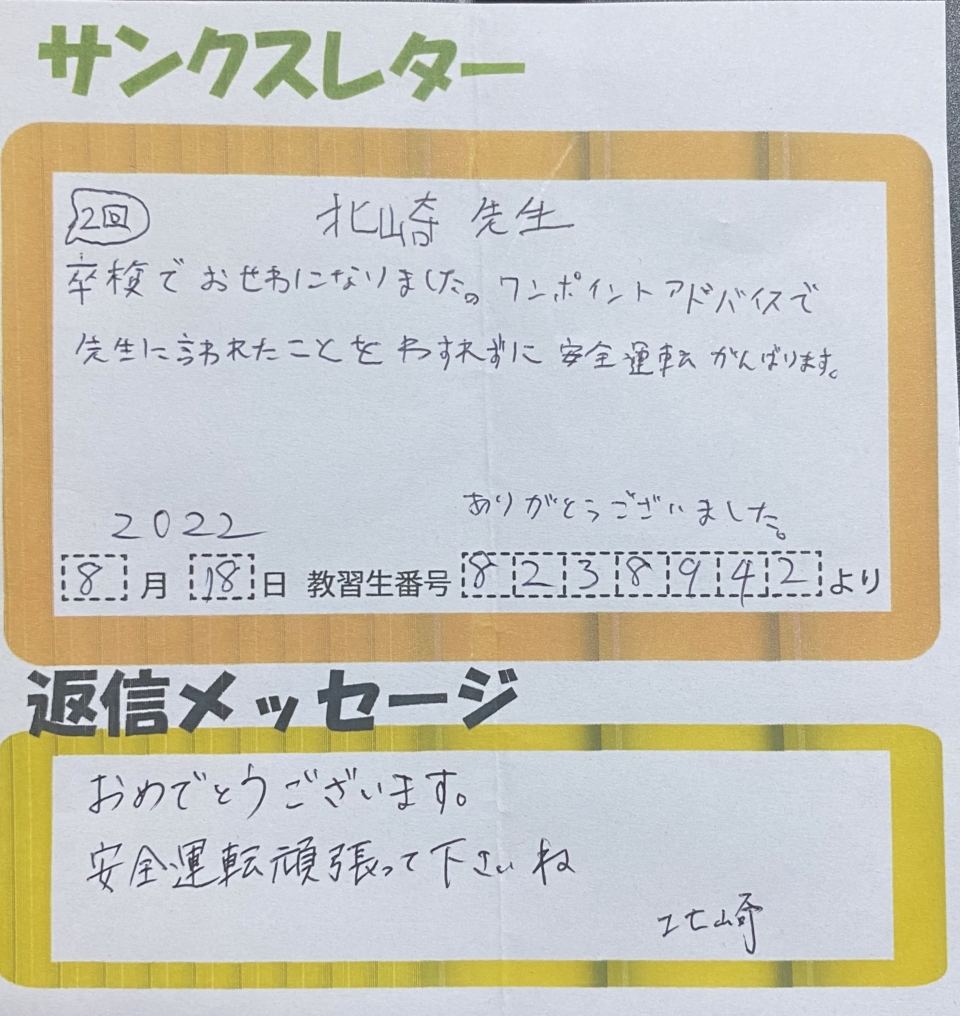 サンクスレター
2回
北崎 先生
卒検でおせわになりました。ワンポイントアドバイスで
先生に言われたことをわすれずに安全運転がんばります。
ありがとうございました。
2022
8月18日 教習生番号 8238942より
返信メッセージ
おめでとうございます。
安全運転頑張って下さいね
北崎